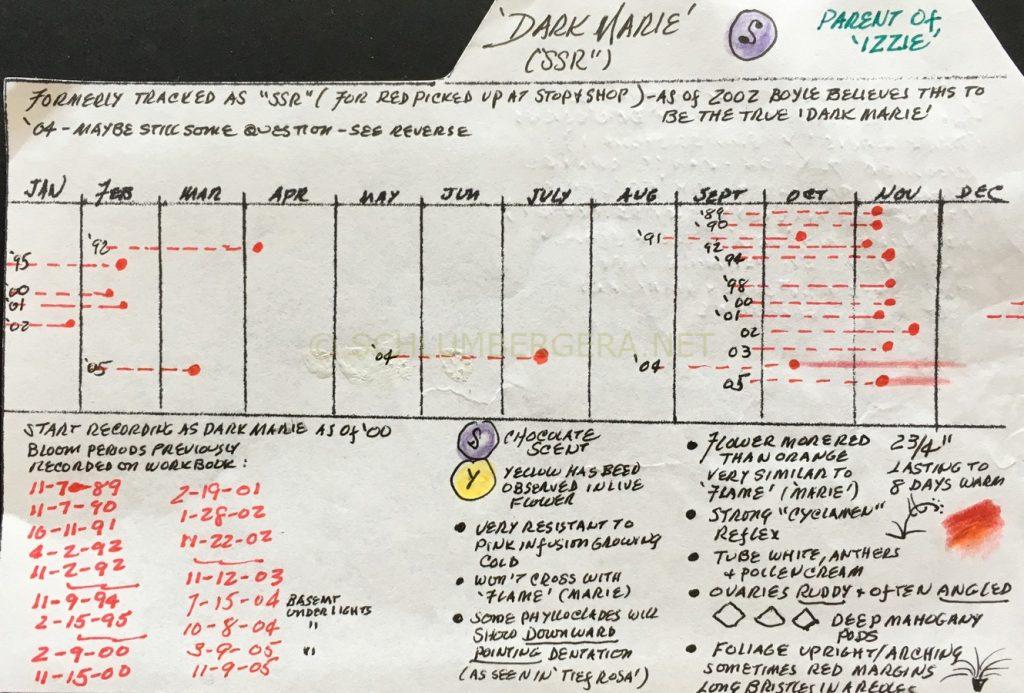 'DARK MARIE'
("SSR")
S
PARENT OF
'IZZIE'
FORMERLY TRACKED AS "SSR" (FOR RED PICKED UP AT STOP & SHOP) - AS OF 2002 BOYLE BELIEVES THIS TO
BE THE TRUE 'DARK MARIE'
'04 - MAYBE STILL SOME QUESTION - SEE REVERSE
JAN FEB MAR APR MAY JUN JULY AUG SEPT OCT NOV DEC
'89
'90
'91
'92 92
'95 '94
'00 '98
'01 '00
'02 '01
02
03
'04 '04
'05 05
© SCHLUMBERGERA.NET
START RECORDING AS DARK MARIE AS OF '00
BLOOM PERIODS PREVIOUSLY
RECORDED ON WORKBOOK:
11-7-89
11-7-90
10-11-91
4-2-92
11-2-92
11-9-94
2-15-95
2-9-00
11-15-00
2-19-01
1-28-02
11-22-02
11-12-03
7-15-04 BASEMT
UNDER LIGHTS
10-8-04 "
3-9-05 "
11-9-05
S CHOCOLATE
SCENT
Y YELLOW HAS BEED
OBSERVED IN LIVE
FLOWER
• VERY RESISTANT TO
PINK INFUSION GROWING
COLD
• WON'T CROSS WITH
'FLAME' (MARIE)
• SOME PHYLLOCLADES WILL
SHOW DOWNWARD
POINTING DENTATION
(AS SEEN IN 'TIEF ROSA')
• FLOWER MORE RED
THAN ORANGE
VERY SIMILAR TO
'FLAME' ('MARIE')
2 3/4"
LASTING TO
8 DAYS WARM
• STRONG "CYCLAMEN"
REFLEX
• TUBE WHITE, ANTHERS
& POLLEN CREAM
• OVARIES RUDDY & OFTEN ANGLED
DEEP MAHOGANY
PODS
• FOLIAGE UPRIGHT/ARCHING
SOMETIMES RED MARGINS
LONG BRISTLES IN AREOLES